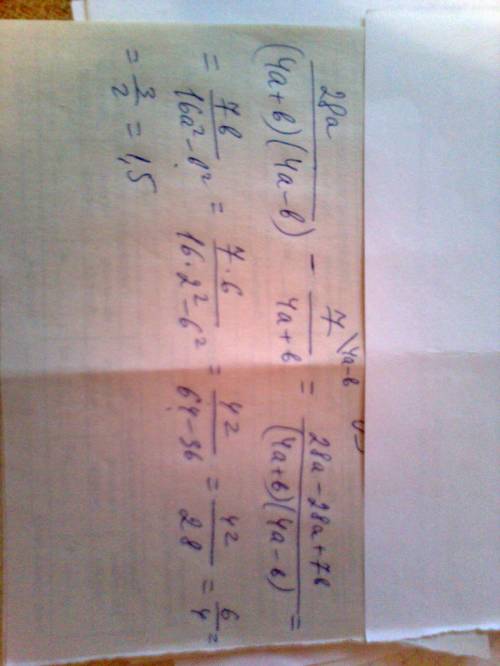 28a/((4a+b)(4a-b)) - 7\4a-b/(4a+b) = (28a-28a+7b)/((4a+b)(4a-b)) =
= 7b/(16a²-b²) = 7·6/(16·2²-6²) = 42/(64-36) = 42/28 = 6/4 =
= 3/2 = 1,5